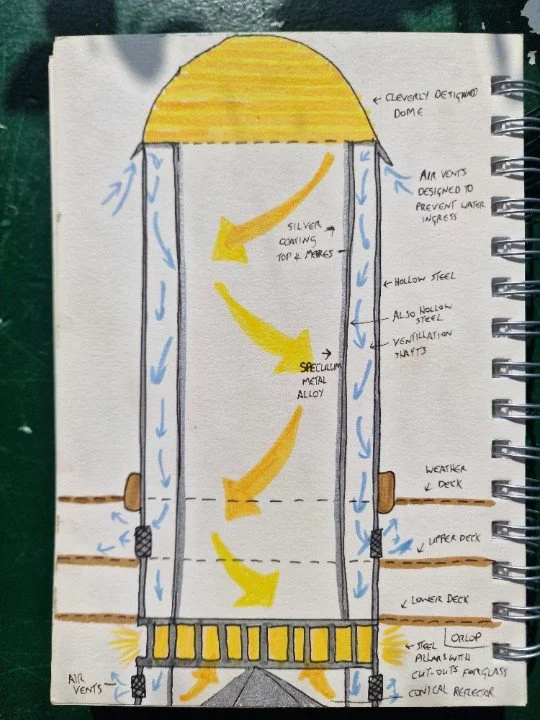 CLEVERLY DESIGNED
DOME
AIR VENTS
DESIGNED TO
PREVENT WATER
INGRESS
SILVER
COATING
TOP 4 METRES
HOLLOW STEEL
ALSO HOLLOW
STEEL
VENTILLATION
SHAFTS
SPECULUM
METAL
ALLOY
WEATHER
DECK
UPPER DECK
LOWER DECK
ORLOP
STEEL
PILLARS WITH
CUT-OUTS FOR GLASS
AIR
VENTS
CONICAL REFLECTOR